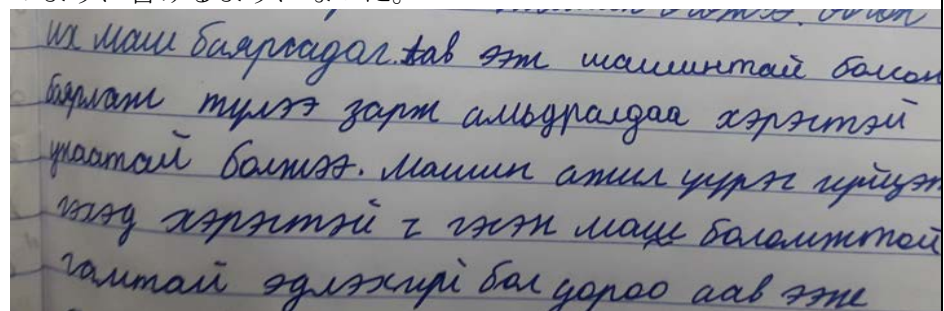 их маш баярладаг. Аав ээж машинтай болсон
баярлаж түлээ зарж амьдралдаа хэрэгтэй
унаатай болжээ. Машин ажил үүрэг гүйцэт
гэхэд хэрэгтэй ч гэсэн маш боломжтой
гамтай эдлэхгүй бол дороо аав ээж